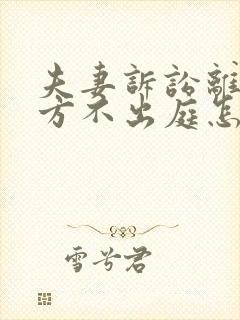 夫妻訴訟離
方不出庭怎
雪兮君